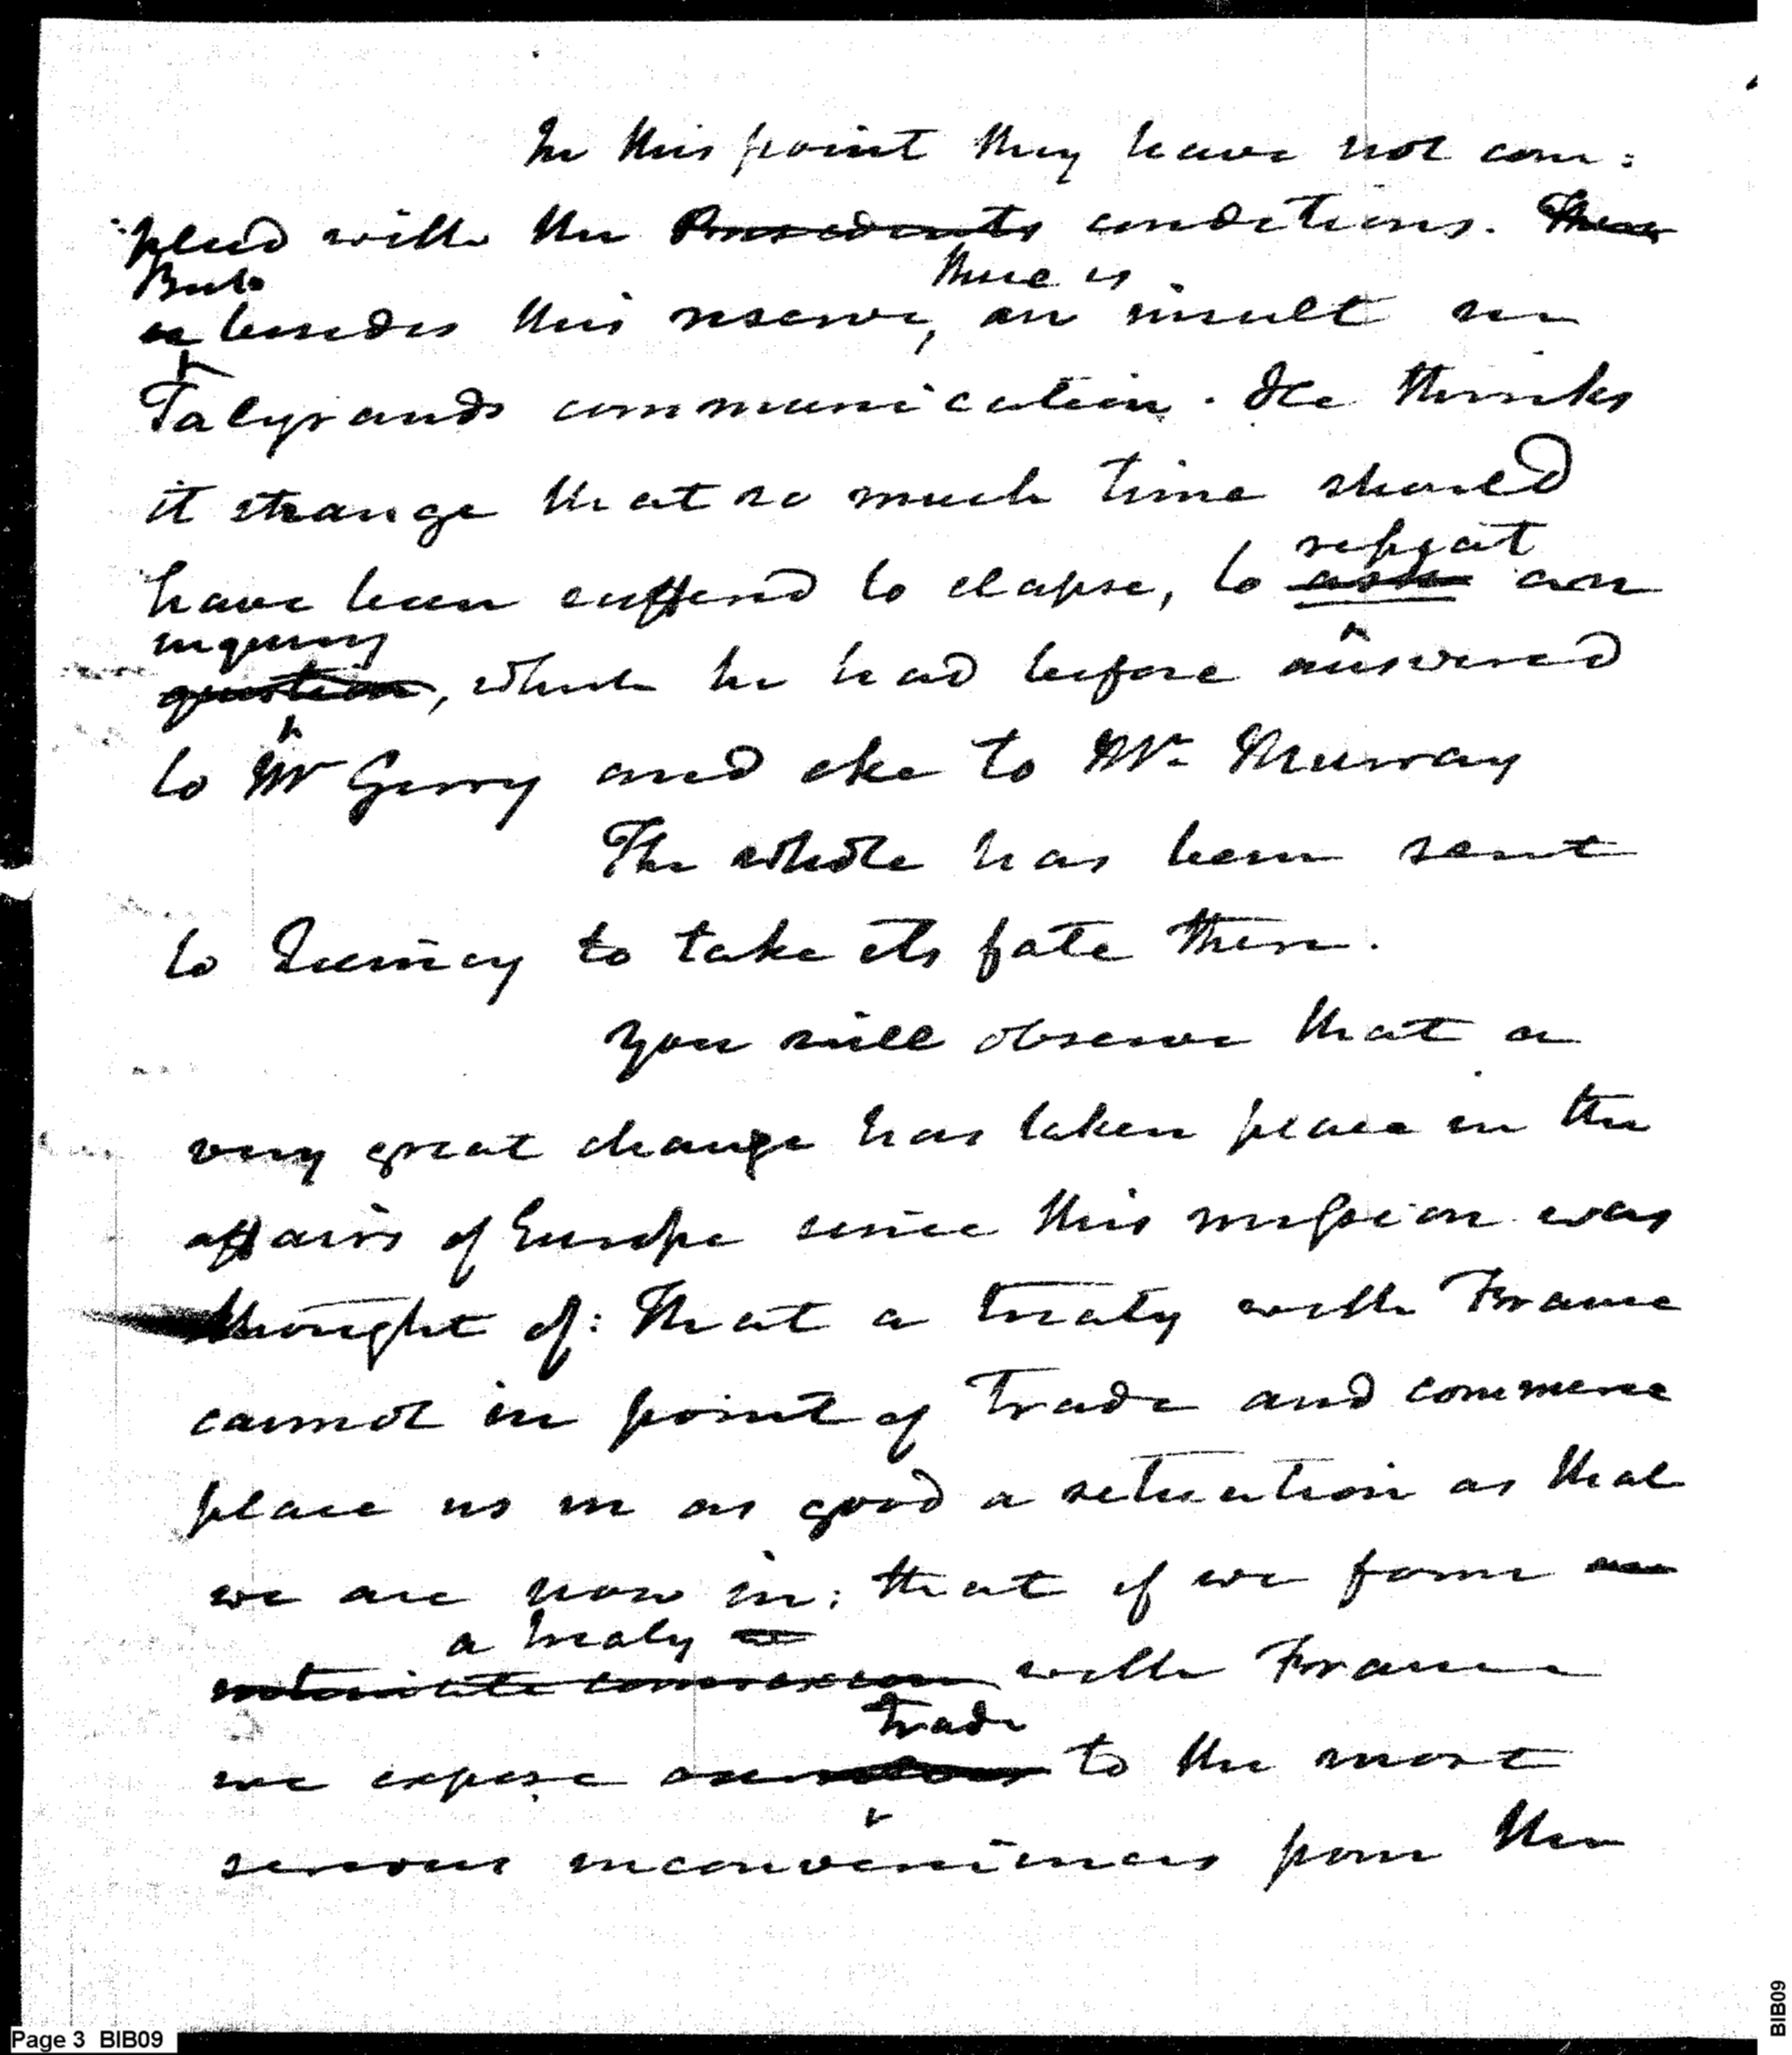 In this point they have not com:
:plied with the Presidents conditions. There
But there is
is besides this reserve, an insult in
Talyrands communication. He thinks
it strange that so much time should
repeat
have been suffered to elapse, to ask an
inquiry
question, which he had before answered
to Mr Gerry and eke to Mr. Murray
The whole has been sent
to Quincy to take its fate there.
You will observe that a
very great change has taken place in the
affairs of Europe since this mission was
thought of: That a treaty with France
cannot in point of Trade and commerce
place us in as good a situation as that
we are now in: that if we form an
a treaty
intimate connexion with France
trade
we expose ourselves to the most
serious inconveniences from the
Page 3 BIB09
BIB09